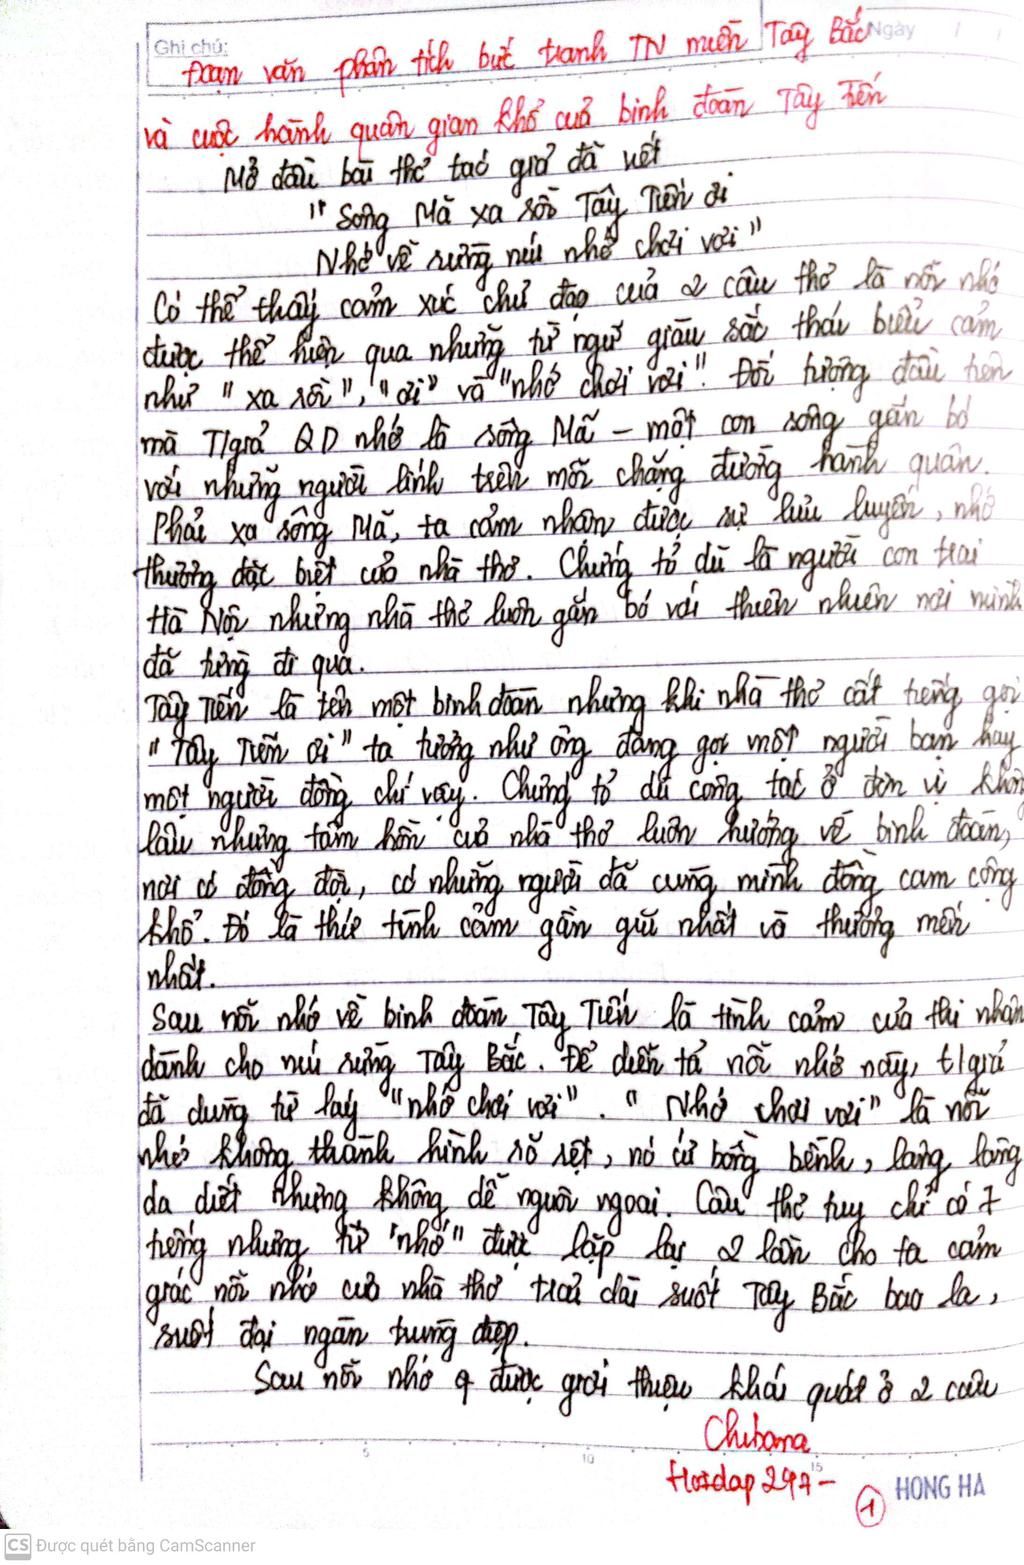 Ghi chú:
Ngày / /
Đoạn văn phân tích bức tranh TN miền Tây Bắc
và cuộc hành quân gian khổ của binh đoàn Tây Tiến
Mở đầu bài thơ tác giả đã viết
" Sông Mã xa rồi Tây Tiến ơi
Nhớ về rừng núi nhớ chơi vơi "
Có thể thấy cảm xúc chủ đạo của 2 câu thơ là nỗi nhớ
được thể hiện qua những từ ngữ giàu sắc thái biểu cảm
như " xa rồi ", " ơi " và " nhớ chơi vơi ". Đối tượng đầu tiên
mà T/giả QD nhớ là sông Mã – một con sông gắn bó
với những người lính trên mỗi chặng đường hành quân.
Phải xa sông Mã, ta cảm nhận được sự lưu luyến, nhớ
thương đặc biệt của nhà thơ. Chứng tỏ dù là người con trai
Hà Nội nhưng nhà thơ luôn gắn bó với thiên nhiên nơi mình
đã từng đi qua.
Tây Tiến là tên một binh đoàn nhưng khi nhà thơ cất tiếng gọi
" Tây Tiến ơi " ta tưởng như ông đang gọi một người bạn hay
một người đồng chí vậy. Chứng tỏ dù công tác ở đơn vị không
lâu nhưng tâm hồn của nhà thơ luôn hướng về binh đoàn,
nơi có đồng đội, có những người đã cùng mình đồng cam cộng
khổ. Đó là thứ tình cảm gần gũi nhất và thương mến
nhất.
Sau nỗi nhớ về binh đoàn Tây Tiến là tình cảm của thi nhân
dành cho núi rừng Tây Bắc. Để diễn tả nỗi nhớ này, t/giả
đã dùng từ láy " nhớ chơi vơi ". " Nhớ chơi vơi " là nỗi
nhớ không thành hình rõ rệt, nó cứ bồng bềnh, lâng lâng
da diết nhưng không dễ nguôi ngoai. Câu thơ tuy chỉ có 7
tiếng nhưng từ "nhớ" được lặp lại 2 lần cho ta cảm
giác nỗi nhớ của nhà thơ trải dài suốt Tây Bắc bao la,
suốt đại ngàn trùng điệp.
Sau nỗi nhớ q được giới thiệu khái quát ở 2 câu
Chibana
Hoidap 247 –
5 10 15
1
HONG HA
CS Được quét bằng CamScanner